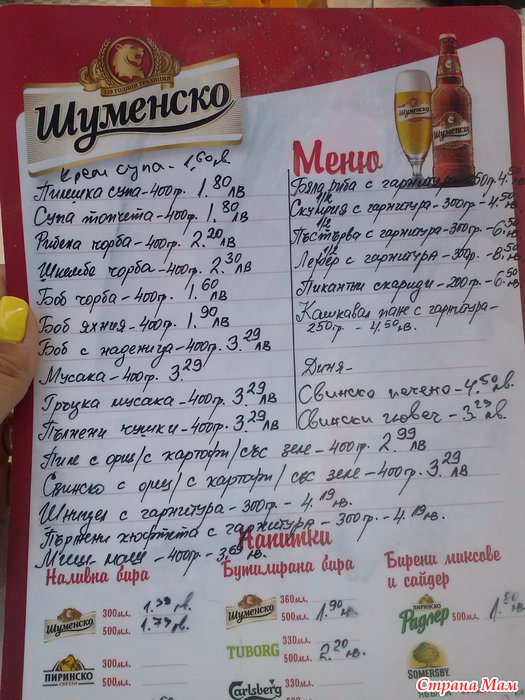 130 ГОДИНИ ТРАДИЦИЯ
Шуменско
Меню
Крем супа - 1,60 лв.
Пилешка супа - 400гр. 1.80 лв
Супа топчета - 400гр. 1.80 лв
Рибена чорба - 400гр. 2.20 лв
Шкембе чорба - 400гр. 2.30 лв
Боб чорба - 400гр. 1.60 лв
Боб яхния - 400гр. 1.90 лв
Боб с наденица - 400гр. 3.29 лв
Мусака - 400гр. 3.29
Гръцка мусака - 400гр. 3.29 лв
Пълнени чушки - 400гр. 3.29 лв
Бяла риба с гарнитура - 4.50
Скумрия с гарнитура - 300гр - 4.50 лв.
Пъстърва с гарнитура - 300гр - 6.50
Лефер с гарнитура - 300гр - 8.50 лв.
Пикантни скариди - 200гр. - 6.50 лв.
Кашкавал пане с гарнитура -
250гр - 4.50 лв.
Диня -
Свинско печено - 4.50 лв.
Свински гювеч - 3.29 лв.
Пиле с ориз/с картофи/със зеле - 400гр 2.99 лв
Свинско с ориз/с картофи/със зеле - 400гр. 3.29 лв
Шницел с гарнитура - 300гр - 4.19 лв.
Пържени кюфтета с гарнитура - 300гр - 4.19 лв.
Миш-маш - 400гр - 3,69 лв.
Напитки
Наливна бира
Шуменско
300мл. 1.39 лв.
500мл. 1.79 лв.
ПИРИНСКО
СВЕТЛО
300мл.
500мл.
Бутилирана бира
Шуменско
360мл.
500мл. 1.90 лв.
TUBORG
330мл.
500мл. 2.20 лв.
Carlsberg
330мл.
500мл.
Бирени миксове
и сайдер
ПИРИНСКО
Радлер
500мл.
SOMERSBY
Страна Мам